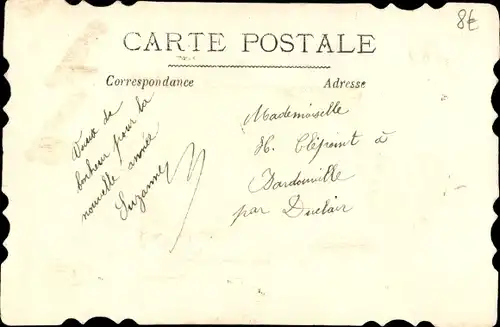 8€
CARTE POSTALE
Correspondance
Adresse
Vœux de
bonheur pour la
nouvelle année
Suzanne
Mademoiselle
H. Clépoint à
Bardouville
par Duclair